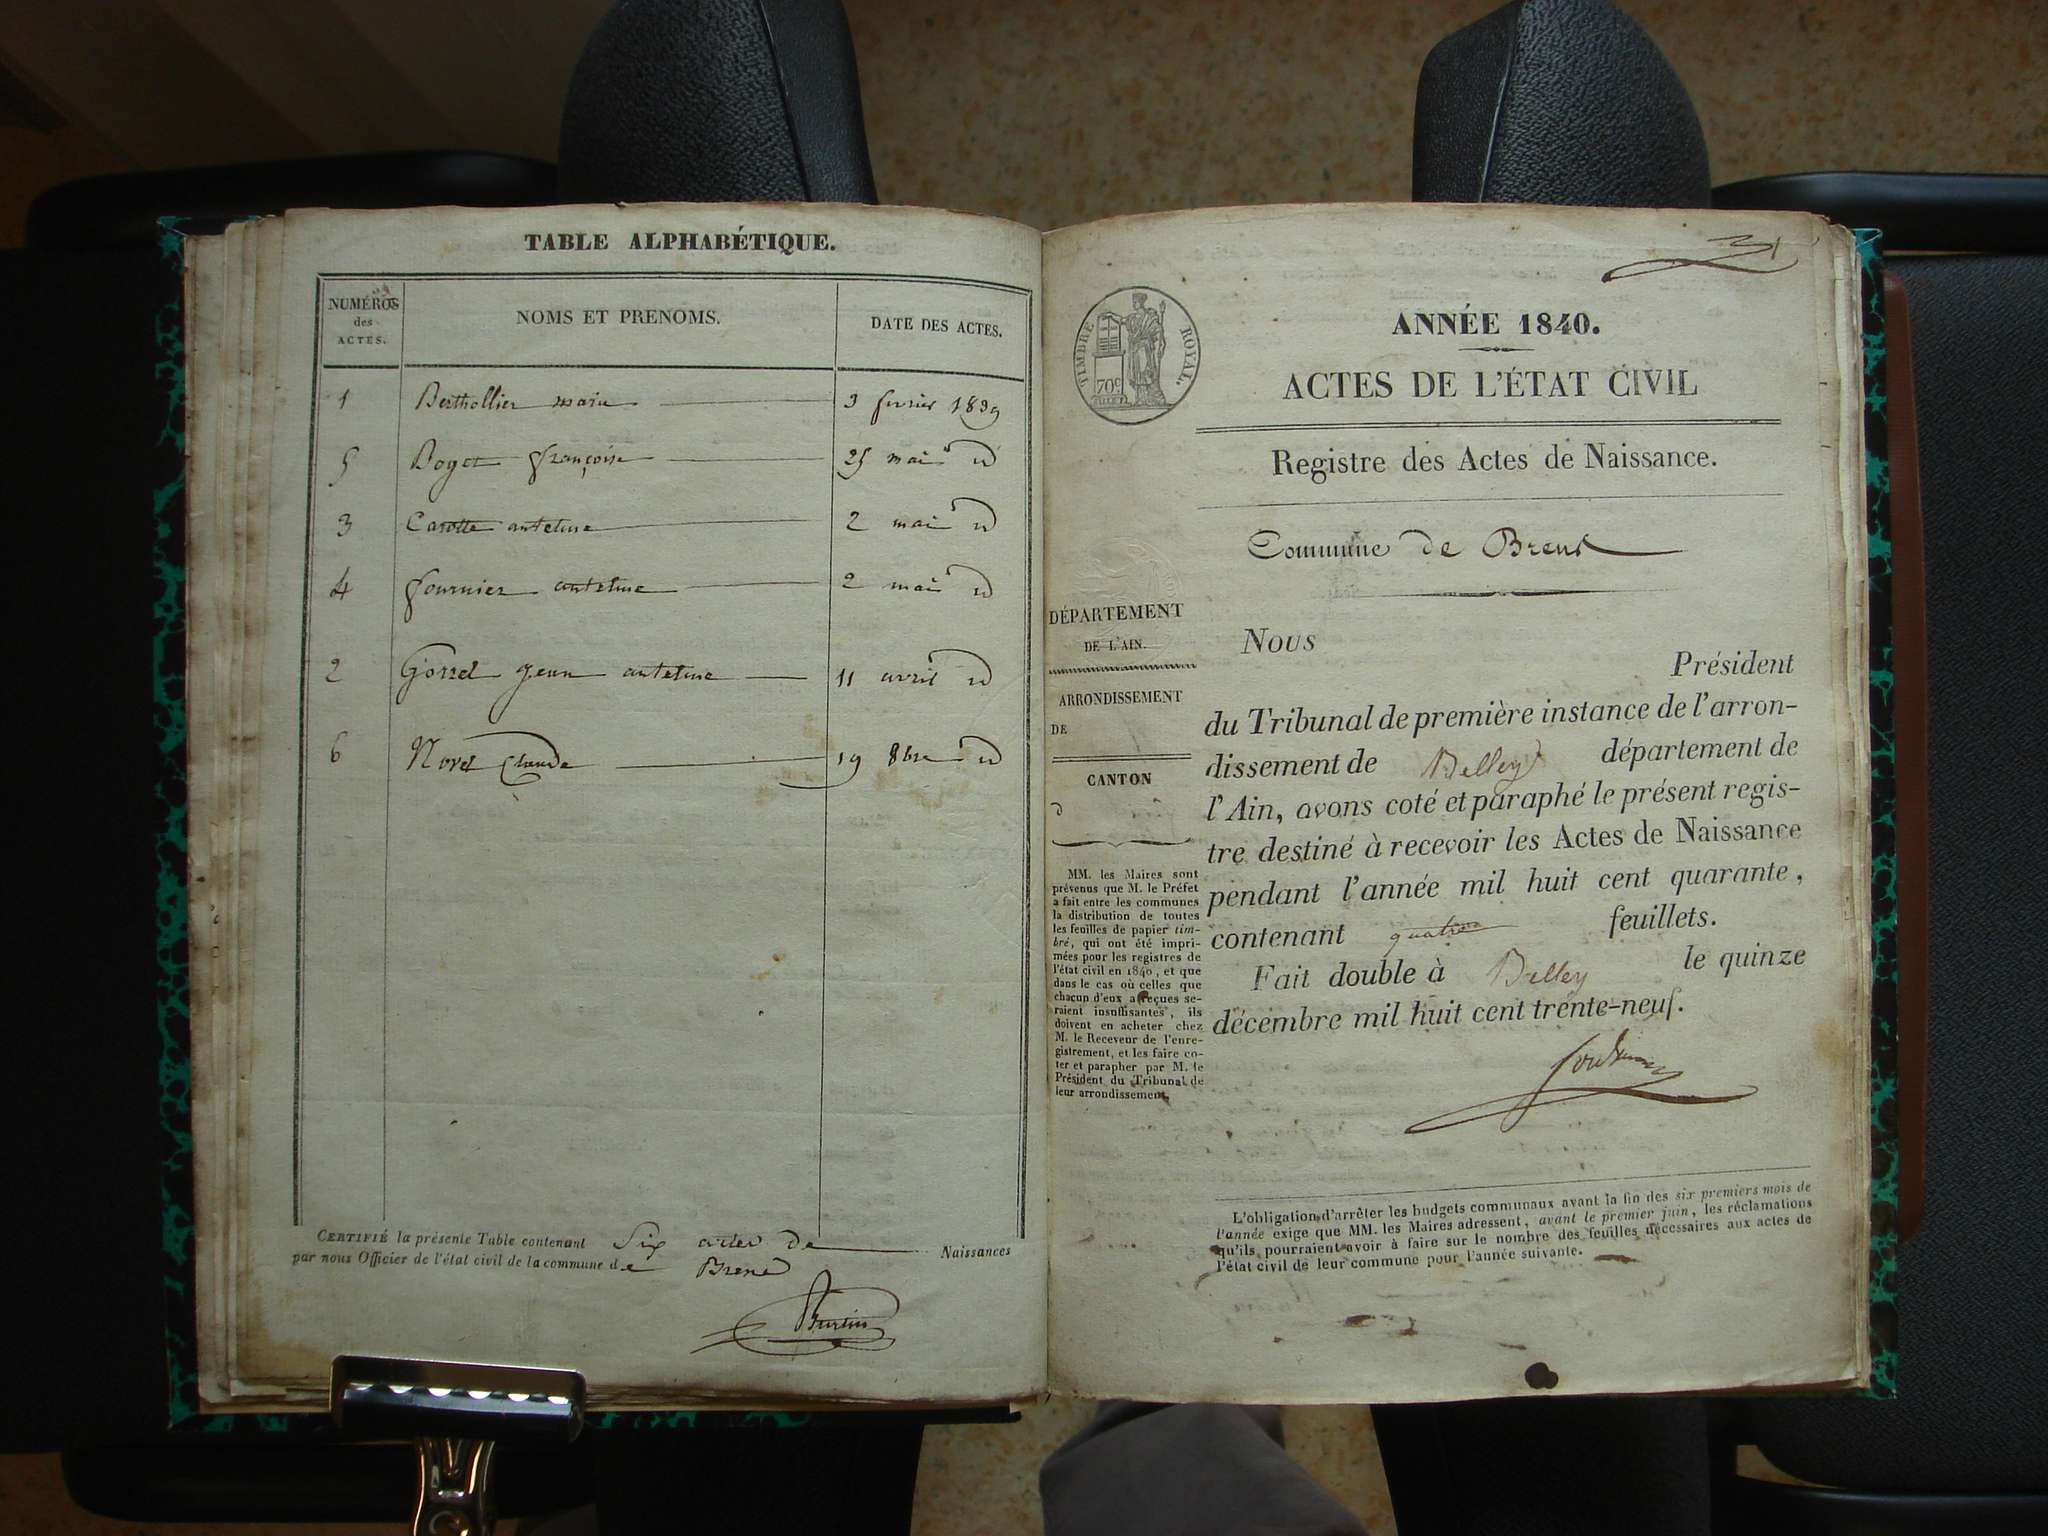 TABLE ALPHABÉTIQUE.
NUMÉROS
des
ACTES.
NOMS ET PRENOMS.
DATE DES ACTES.
1 Berthollier marie 3 fevrier 1839
5 Boget françoise 25 mai id
3 Carotte antelme 2 mai id
4 fournier antelme 2 mai id
2 Gorrel jean antelme 11 avril id
6 Novel Claude 19 8bre id
CERTIFIÉ la présente Table contenant Six actes de Naissances
par nous Officier de l'état civil de la commune de Brens
Burtin
31
TIMBRE ROYAL.
70c
ANNÉE 1840.
ACTES DE L'ÉTAT CIVIL
Registre des Actes de Naissance.
Commune de Brens
DÉPARTEMENT
DE L'AIN.
ARRONDISSEMENT
DE
CANTON
d
MM. les Maires sont
prévenus que M. le Préfet
a fait entre les communes
la distribution de toutes
les feuilles de papier tim-
bré, qui ont été impri-
mées pour les registres de
l'état civil en 1840, et que
dans le cas où celles que
chacun d'eux a reçues se-
raient insuffisantes, ils
doivent en acheter chez
M. le Receveur de l'enre-
gistrement, et les faire co-
ter et parapher par M. le
Président du Tribunal de
leur arrondissement.
Nous
Président
du Tribunal de première instance de l'arron-
dissement de Belley département de
l'Ain, avons coté et paraphé le présent regis-
tre destiné à recevoir les Actes de Naissance
pendant l'année mil huit cent quarante,
contenant quatre feuillets.
Fait double à Belley le quinze
décembre mil huit cent trente-neuf.
L'obligation d'arrêter les budgets communaux avant la fin des six premiers mois de
l'année exige que MM. les Maires adressent, avant le premier juin, les réclamations
qu'ils pourraient avoir à faire sur le nombre des feuilles nécessaires aux actes de
l'état civil de leur commune pour l'année suivante.